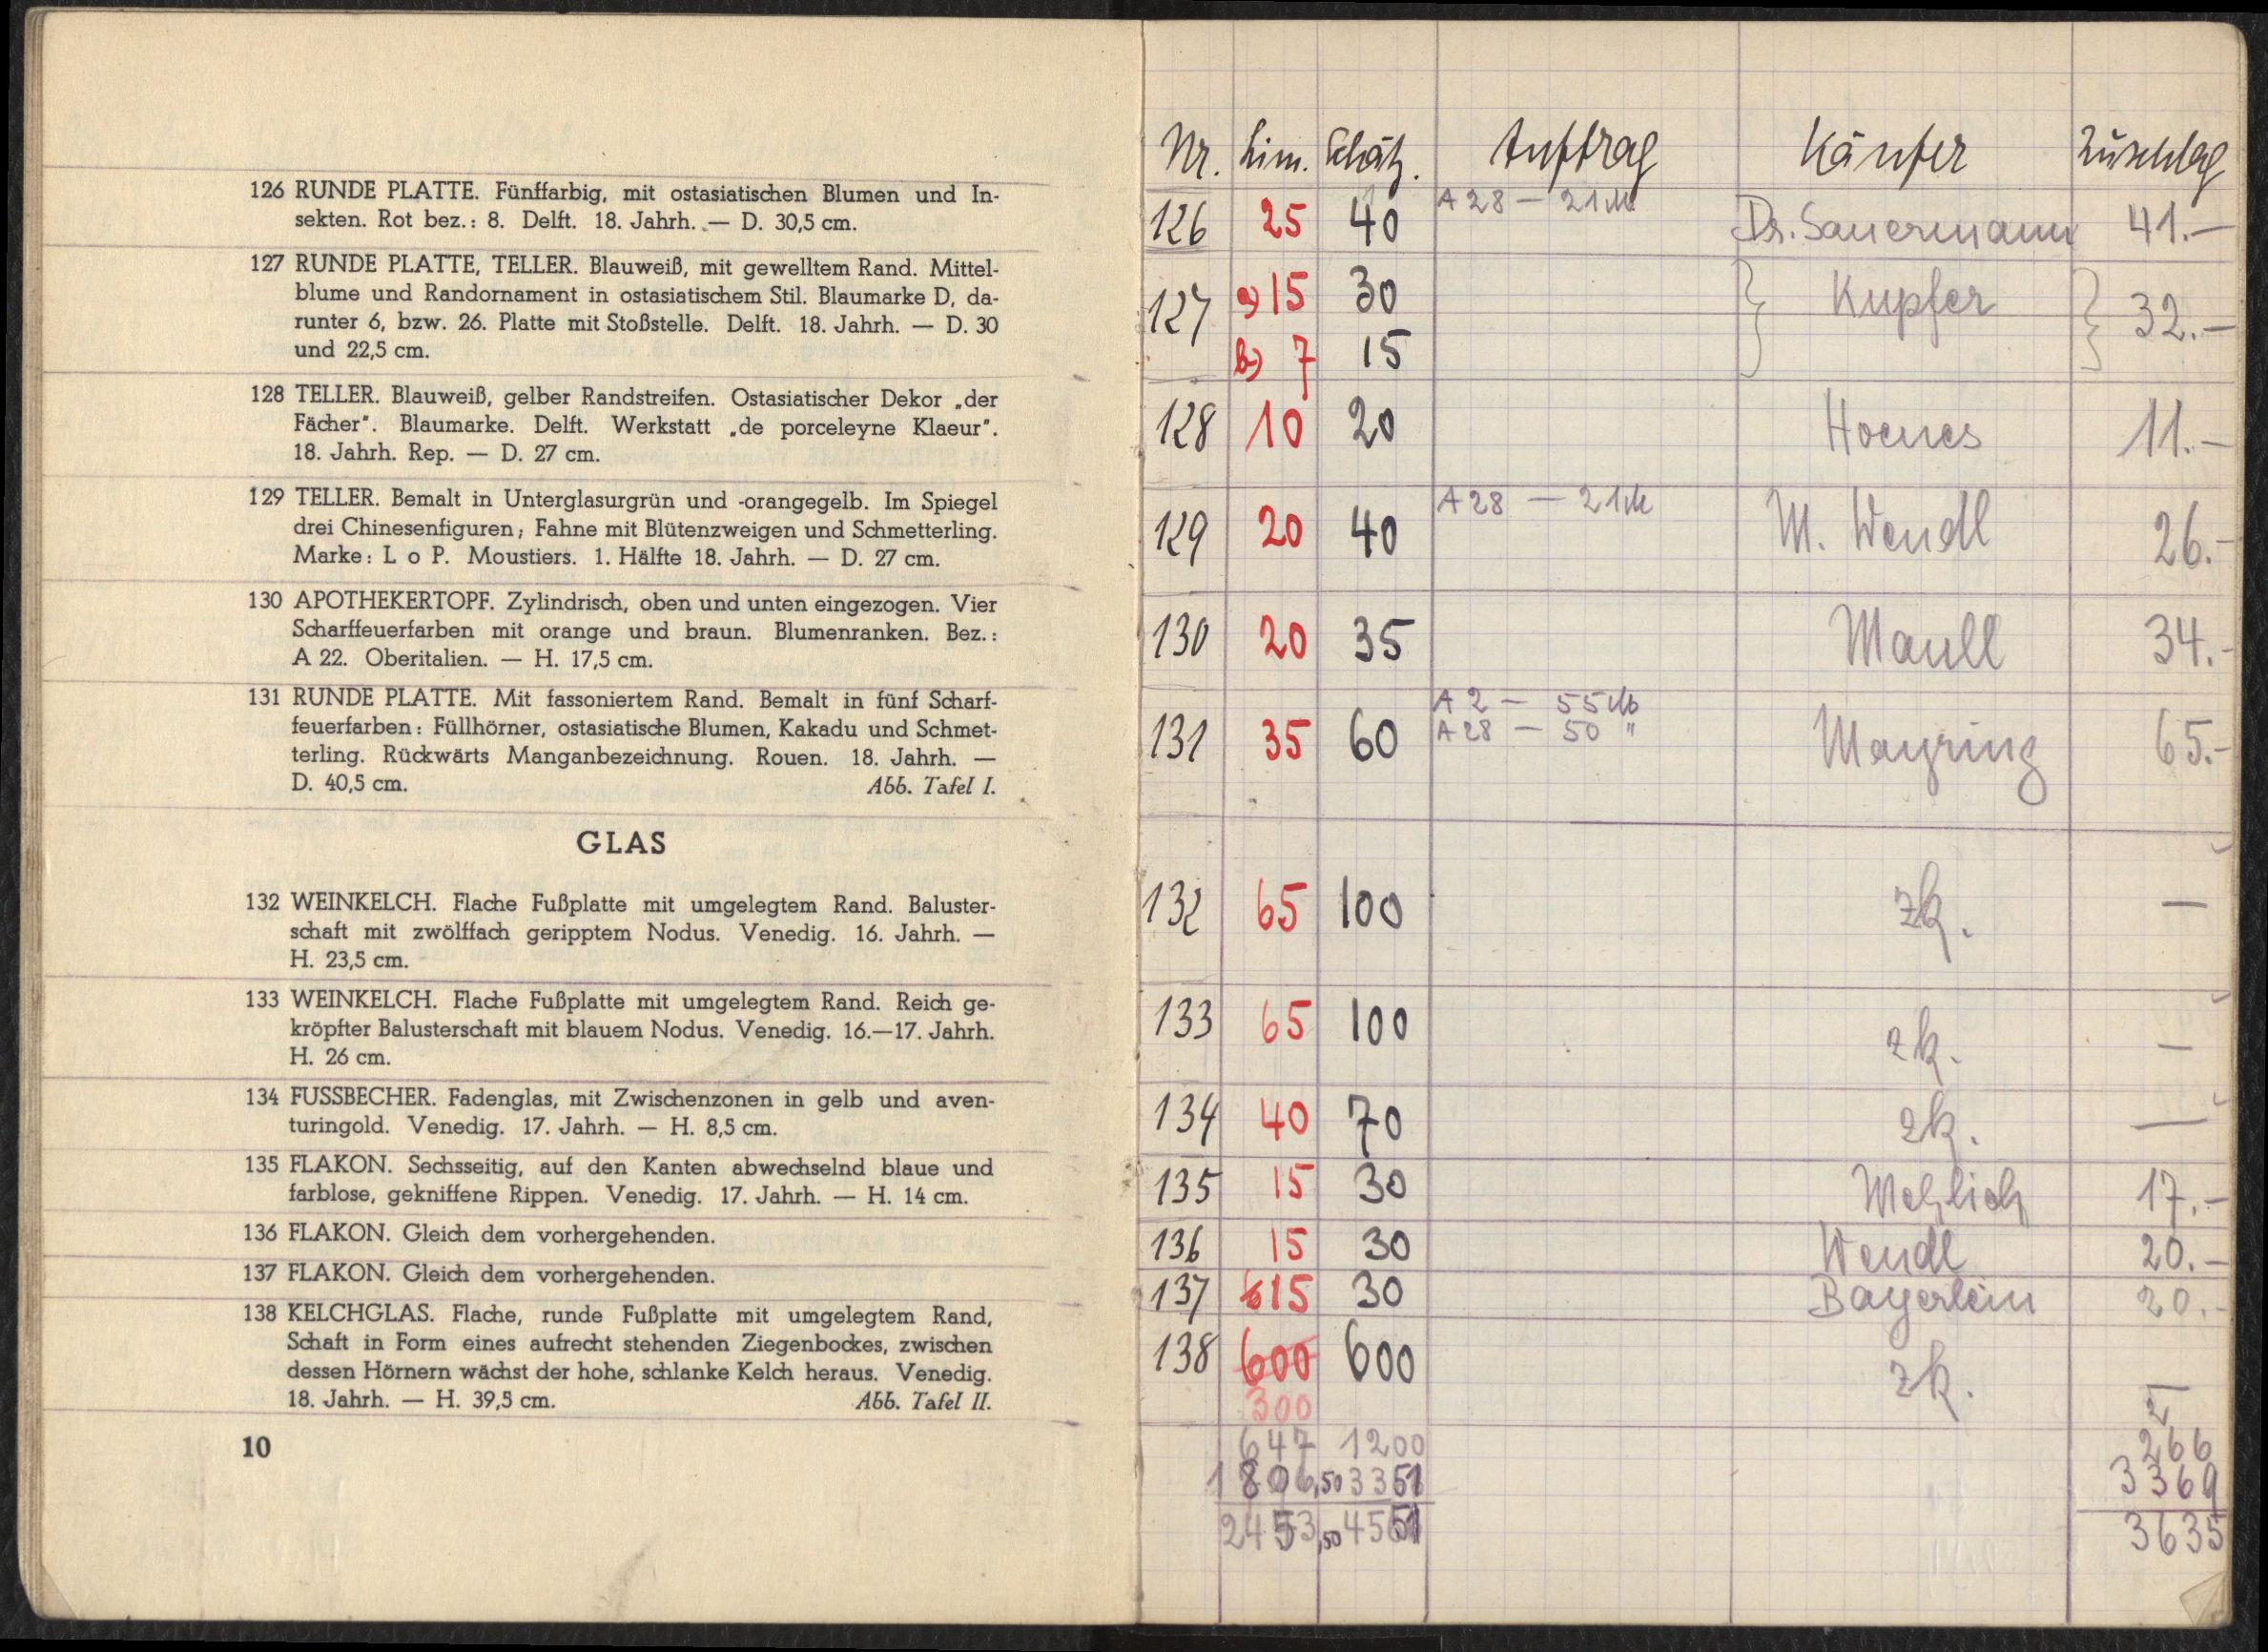 126 RUNDE PLATTE. Fünffarbig, mit ostasiatischen Blumen und In-
sekten. Rot bez.: 8. Delft. 18. Jahrh. — D. 30,5 cm.
127 RUNDE PLATTE, TELLER. Blauweiß, mit gewelltem Rand. Mittel-
blume und Randornament in ostasiatischem Stil. Blaumarke D, da-
runter 6, bzw. 26. Platte mit Stoßstelle. Delft. 18. Jahrh. — D. 30
und 22,5 cm.
128 TELLER. Blauweiß, gelber Randstreifen. Ostasiatischer Dekor „der
Fächer". Blaumarke. Delft. Werkstatt „de porceleyne Klaeur".
18. Jahrh. Rep. — D. 27 cm.
129 TELLER. Bemalt in Unterglasurgrün und -orangegelb. Im Spiegel
drei Chinesenfiguren; Fahne mit Blütenzweigen und Schmetterling.
Marke: L o P. Moustiers. 1. Hälfte 18. Jahrh. — D. 27 cm.
130 APOTHEKERTOPF. Zylindrisch, oben und unten eingezogen. Vier
Scharffeuerfarben mit orange und braun. Blumenranken. Bez.:
A 22. Oberitalien. — H. 17,5 cm.
131 RUNDE PLATTE. Mit fassoniertem Rand. Bemalt in fünf Scharf-
feuerfarben: Füllhörner, ostasiatische Blumen, Kakadu und Schmet-
terling. Rückwärts Manganbezeichnung. Rouen. 18. Jahrh. —
D. 40,5 cm. Abb. Tafel I.
GLAS
132 WEINKELCH. Flache Fußplatte mit umgelegtem Rand. Baluster-
schaft mit zwölffach geripptem Nodus. Venedig. 16. Jahrh. —
H. 23,5 cm.
133 WEINKELCH. Flache Fußplatte mit umgelegtem Rand. Reich ge-
kröpfter Balusterschaft mit blauem Nodus. Venedig. 16.—17. Jahrh.
H. 26 cm.
134 FUSSBECHER. Fadenglas, mit Zwischenzonen in gelb und aven-
turingold. Venedig. 17. Jahrh. — H. 8,5 cm.
135 FLAKON. Sechsseitig, auf den Kanten abwechselnd blaue und
farblose, gekniffene Rippen. Venedig. 17. Jahrh. — H. 14 cm.
136 FLAKON. Gleich dem vorhergehenden.
137 FLAKON. Gleich dem vorhergehenden.
138 KELCHGLAS. Flache, runde Fußplatte mit umgelegtem Rand,
Schaft in Form eines aufrecht stehenden Ziegenbockes, zwischen
dessen Hörnern wächst der hohe, schlanke Kelch heraus. Venedig.
18. Jahrh. — H. 39,5 cm. Abb. Tafel II.
10
Nr. Lim. Schätz. Auftrag Käufer Zuschlag
A 28 — 21 M
126 25 40 Dr. Sauermann 41.—
127 a) 15 30 Kupfer 32.—
b) 7 15
128 10 20 Hoenes 11.—
A 28 — 21 M
129 20 40 M. Wendl 26.—
130 20 35 Maull 34.—
A 2 — 55 M
A 28 — 50 "
131 35 60 Mayring 65.—
132 65 100 zk. —
133 65 100 zk. —
134 40 70 zk. —
135 15 30 17.—
136 15 30 Wendl 20.—
137 15 30 Bayerlein 20.—
138 600 600 zk. —
300
647 1200 266
1806,50 3351 3369
2453,50 4551 3635